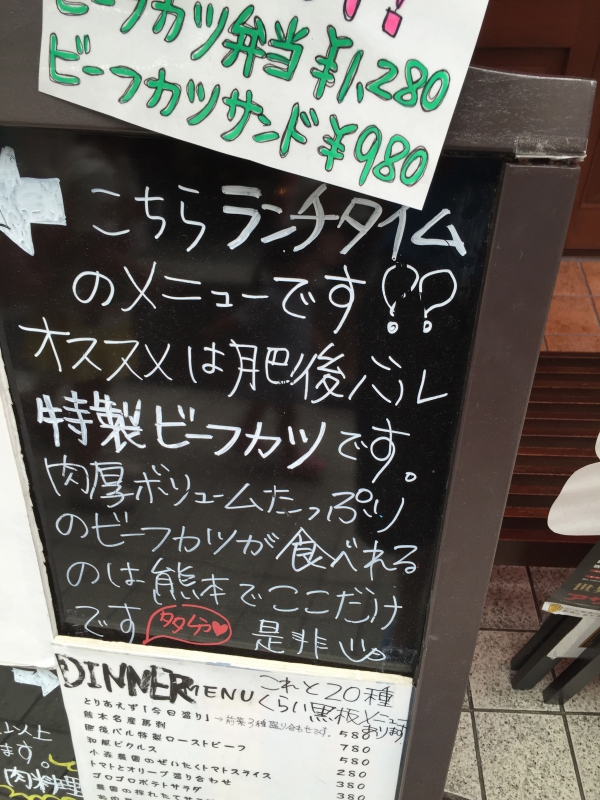 ビーフカツ弁当 ¥1,280
ビーフカツサンド ¥980
こちらランチタイム
のメニューです!?
オススメは肥後バル
特製ビーフカツです。
肉厚ボリュームたっぷり
のビーフカツが食べれる
のは熊本でここだけ
です 是非
DINNER MENU これと20種
くらい黒板メニュー
あります
とりあえず「今日盛り」→前菜3種盛り合わせです。 580
熊本名産馬刺 780
肥後バル特製ローストビーフ 580
和風ピクルス 280
小森農園のぜいたくトマトスライス 380
トマトとオリーブ盛り合わせ 380
ゴロゴロポテトサラダ
以上
ます。
肉料理